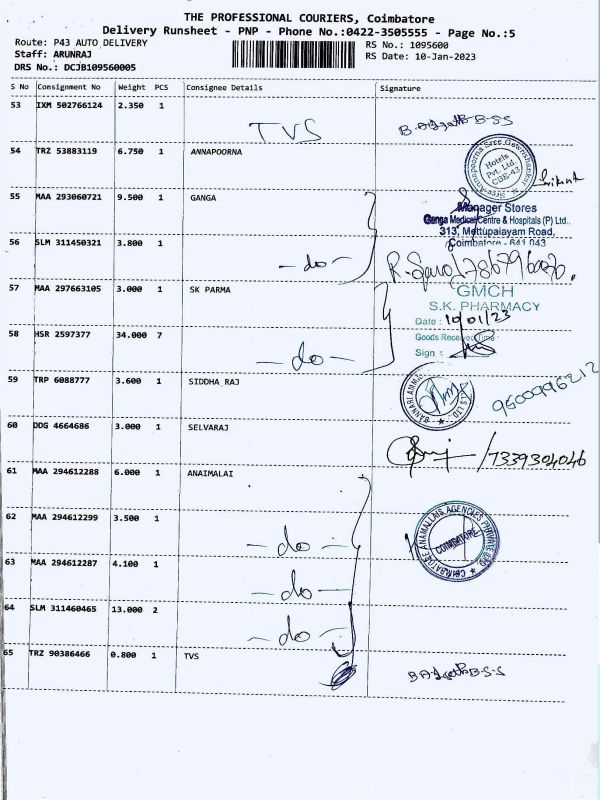 THE PROFESSIONAL COURIERS, Coimbatore
Delivery Runsheet - PNP - Phone No.:0422-3505555 - Page No.:5
Route: P43 AUTO DELIVERY RS No.: 1095600
Staff: ARUNRAJ RS Date: 10-Jan-2023
DRS No.: DCJB109560005
S No Consignment No Weight PCS Consignee Details Signature
53 IXM 502766124 2.350 1 TVS
54 TRZ 53883119 6.750 1 ANNAPOORNA
Hotels
Pvt. Ltd.
CBE-43
55 MAA 293060721 9.500 1 GANGA
Manager Stores
Ganga Medical Centre & Hospitals (P) Ltd.,
313, Mettupalayam Road,
Coimbatore - 641 043
56 SLM 311450321 3.800 1 - do -
57 MAA 297663105 3.000 1 SK PARMA
GMCH
S.K. PHARMACY
Date : 10/01/23
58 HSR 2597377 34.000 7 - do -
Goods Received Time :
Sign :
59 TRP 6088777 3.600 1 SIDDHA RAJ
9600996212
60 DDG 4664686 3.000 1 SELVARAJ
/7339304046
61 MAA 294612288 6.000 1 ANAIMALAI
62 MAA 294612299 3.500 1 - do -
COIMBATORE ANAMALLAIS AGENCIES PRIVATE LTD
COIMBATORE
63 MAA 294612287 4.100 1 - do -
64 SLM 311460465 13.000 2 - do -
65 TRZ 90386466 0.800 1 TVS